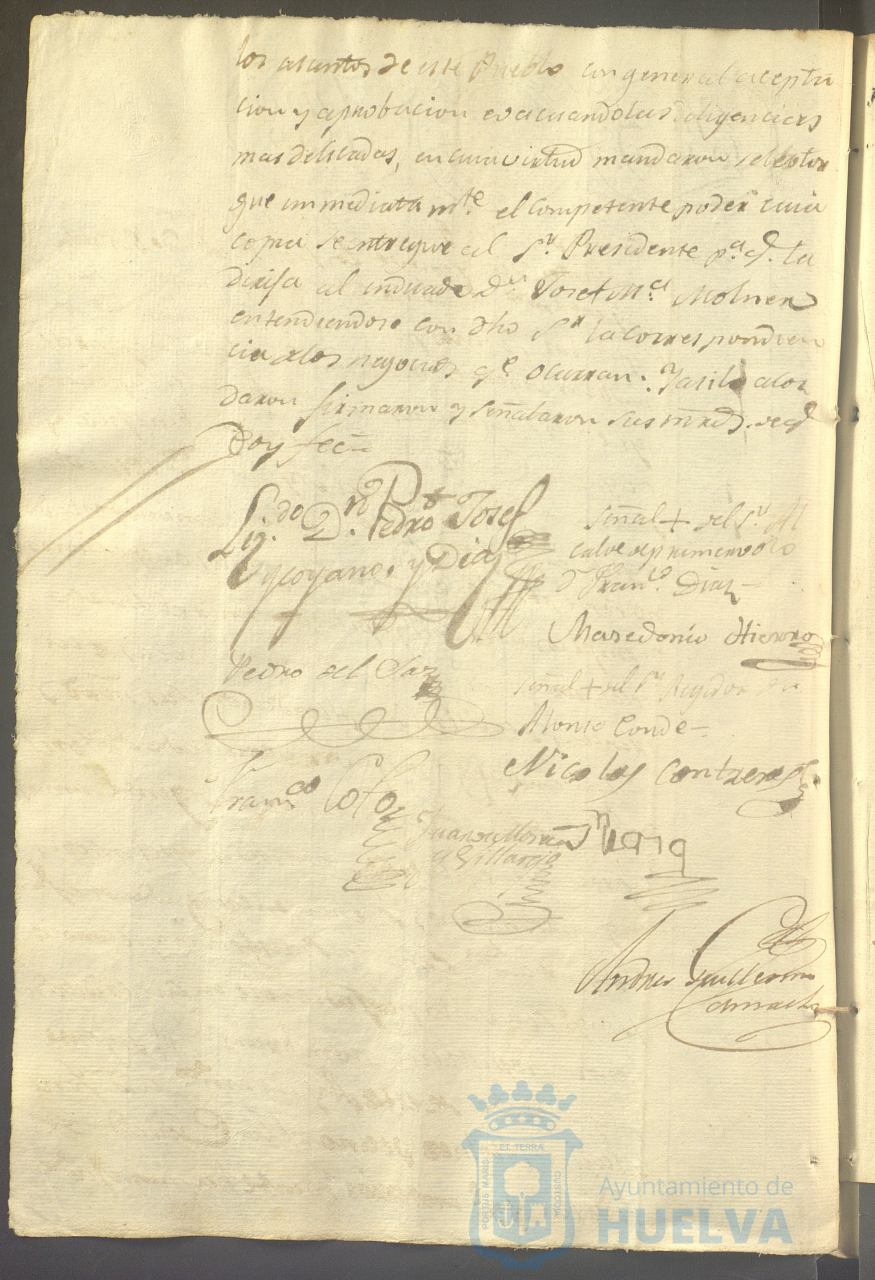 los asuntos de este Pueblo con general acepta
cion y aprobacion evacuando las diligencias
mas delicadas, en cuia virtud mandaron se le otor
gue inmediatam.te el competente poder cuia
copia se entregue al S.r Presidente p.a q.e la
dirija al indicado D.n Josef M.a Molner
entendiendose con dho S.r la correspondien
cia a los negocios q.e ocurran. Y asi lo acor
daron firmaron y señalaron sus mrds. de q.e
Doy fee
Lig.do D.n Pedro Josef
y Diaz
señal + del S.r Al
calde de primer voto
d.n Fran.co Diaz
Masedonio Hierro
Pedro del Saz
señal + del S.r Regidor
Alonso Conde
Nicolas Contreras
Fran.co Coto
Juan
Andres Guillermo
Camacho
ET TERRA
PORTUS MARIS
CUSTODIA
Ayuntamiento de
HUELVA